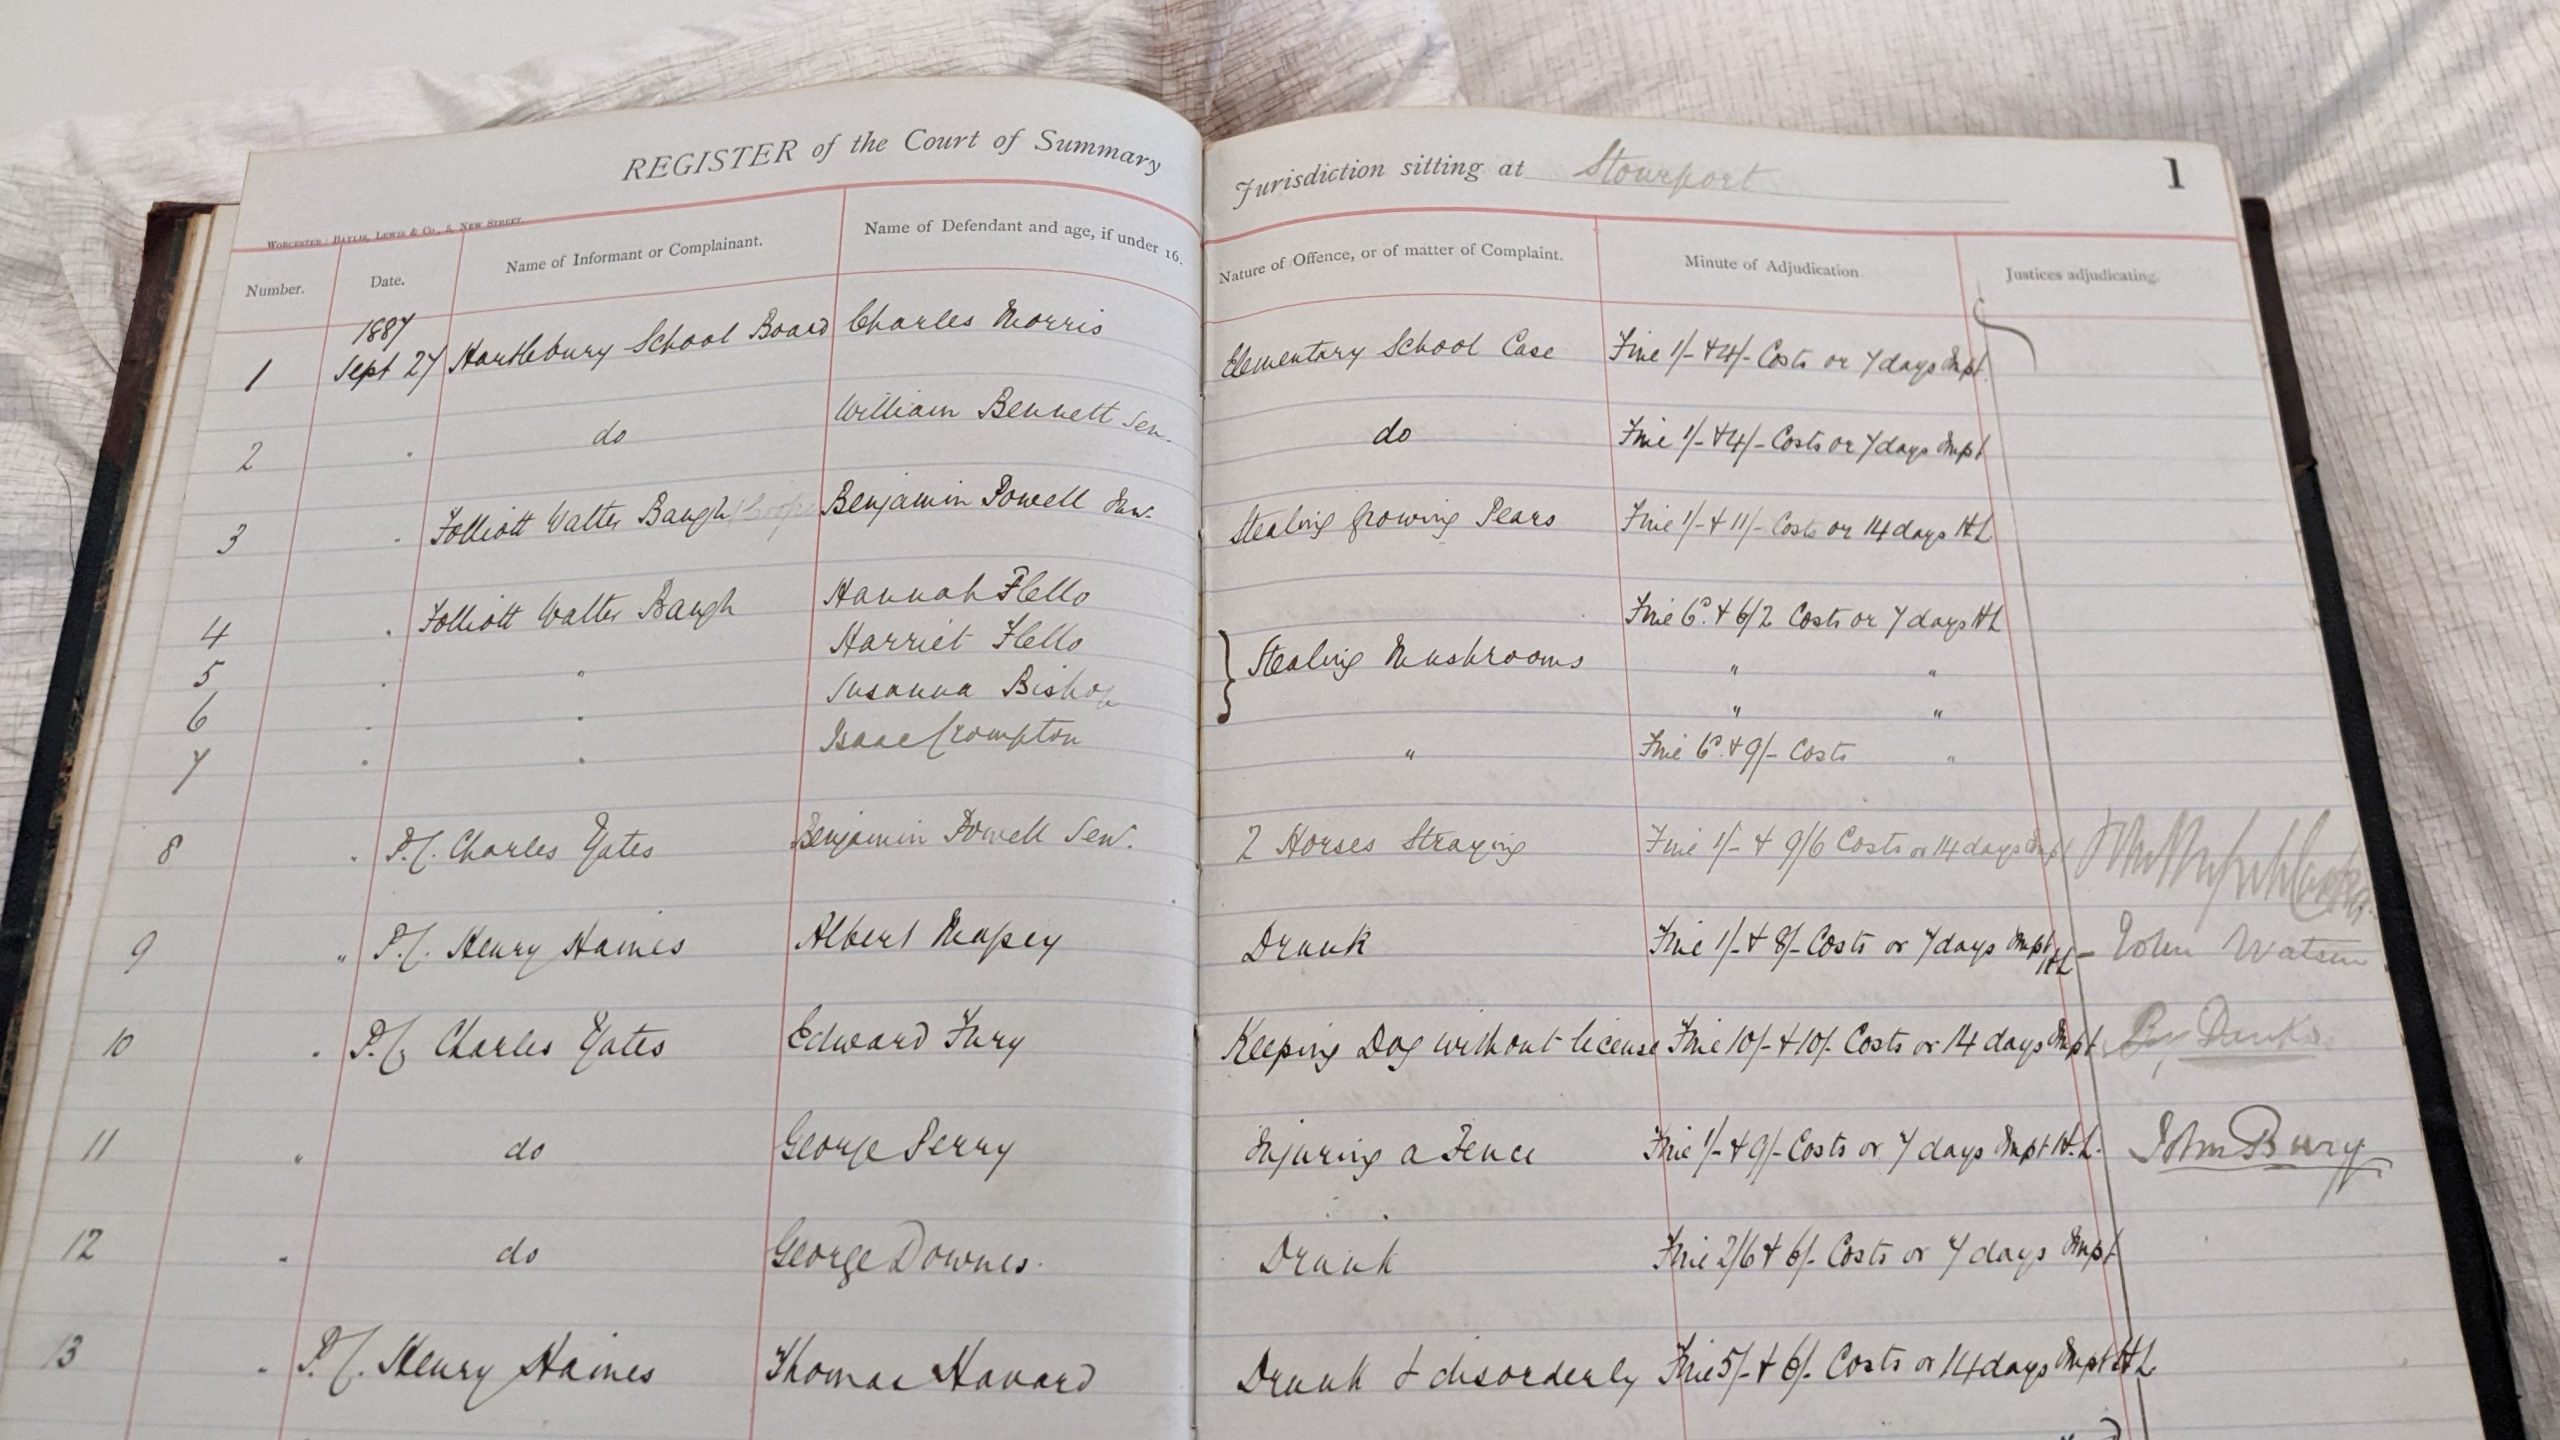 REGISTER of the Court of Summary Jurisdiction sitting at Stourport 1
WORCESTER: BAYLIS, LEWIS & CO, 5, NEW STREET.
Number. Date. Name of Informant or Complainant. Name of Defendant and age, if under 16. Nature of Offence, or of matter of Complaint. Minute of Adjudication Justices adjudicating.
1887
1 Sept 27 Hartlebury School Board Charles Morris Elementary School Case Fine 1/- & 4/- Costs or 7 days Impt
2 " do William Bennett Sen. do Fine 1/- & 4/- Costs or 7 days Impt
3 " Folliott Walter Baugh Benjamin Powell Jun. Stealing growing Pears Fine 1/- & 11/- Costs or 14 days HL
4 " Folliott Walter Baugh Hannah Flello Fine 6d & 6/2 Costs or 7 days HL
5 " " Harriet Flello } Stealing Mushrooms " "
6 " " Susanna Bishop " "
7 " " Isaac Crompton " Fine 6d & 9/- Costs "
8 " P.C. Charles Yates Benjamin Powell Sen. 2 Horses Straying Fine 1/- & 9/6 Costs or 14 days Impt
9 " P.C. Henry Haines Albert Mapey Drunk Fine 1/- & 8/- Costs or 7 days Impt HL John Watson
10 " P.C. Charles Yates Edward Fury Keeping Dog without license Fine 10/- & 10/- Costs or 14 days Impt
11 " do George Perry Injuring a Fence Fine 1/- & 9/- Costs or 7 days Impt H.L. John Bury
12 " do George Downes. Drunk Fine 2/6 & 6/- Costs or 7 days Impt
13 " P.C. Henry Haines Thomas Havard Drunk & disorderly Fine 5/- & 6/- Costs or 14 days Impt HL